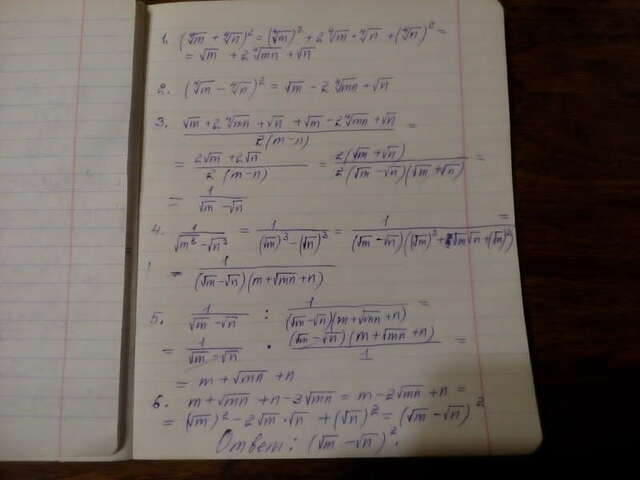 1. (⁴√m + ⁴√n)² = (⁴√m)² + 2 ⁴√m · ⁴√n + (⁴√n)² =
= √m + 2 ⁴√mn + √n
2. (⁴√m − ⁴√n)² = √m − 2 ⁴√mn + √n
3. (√m + 2 ⁴√mn + √n + √m − 2 ⁴√mn + √n) / (2(m−n)) =
= (2√m + 2√n) / (2(m−n)) = (2(√m + √n)) / (2(√m − √n)(√m + √n)) =
= 1 / (√m − √n)
4. 1 / (√m³ − √n³) = 1 / ((√m)³ − (√n)³) = 1 / ((√m − √n)((√m)² + √m√n + (√n)²)) =
= 1 / ((√m − √n)(m + √mn + n))
5. 1 / (√m − √n) : 1 / ((√m − √n)(m + √mn + n)) =
= 1 / (√m − √n) · ((√m − √n)(m + √mn + n)) / 1 =
= m + √mn + n
6. m + √mn + n − 3√mn = m − 2√mn + n =
= (√m)² − 2√m · √n + (√n)² = (√m − √n)²
Ответ: (√m − √n)².